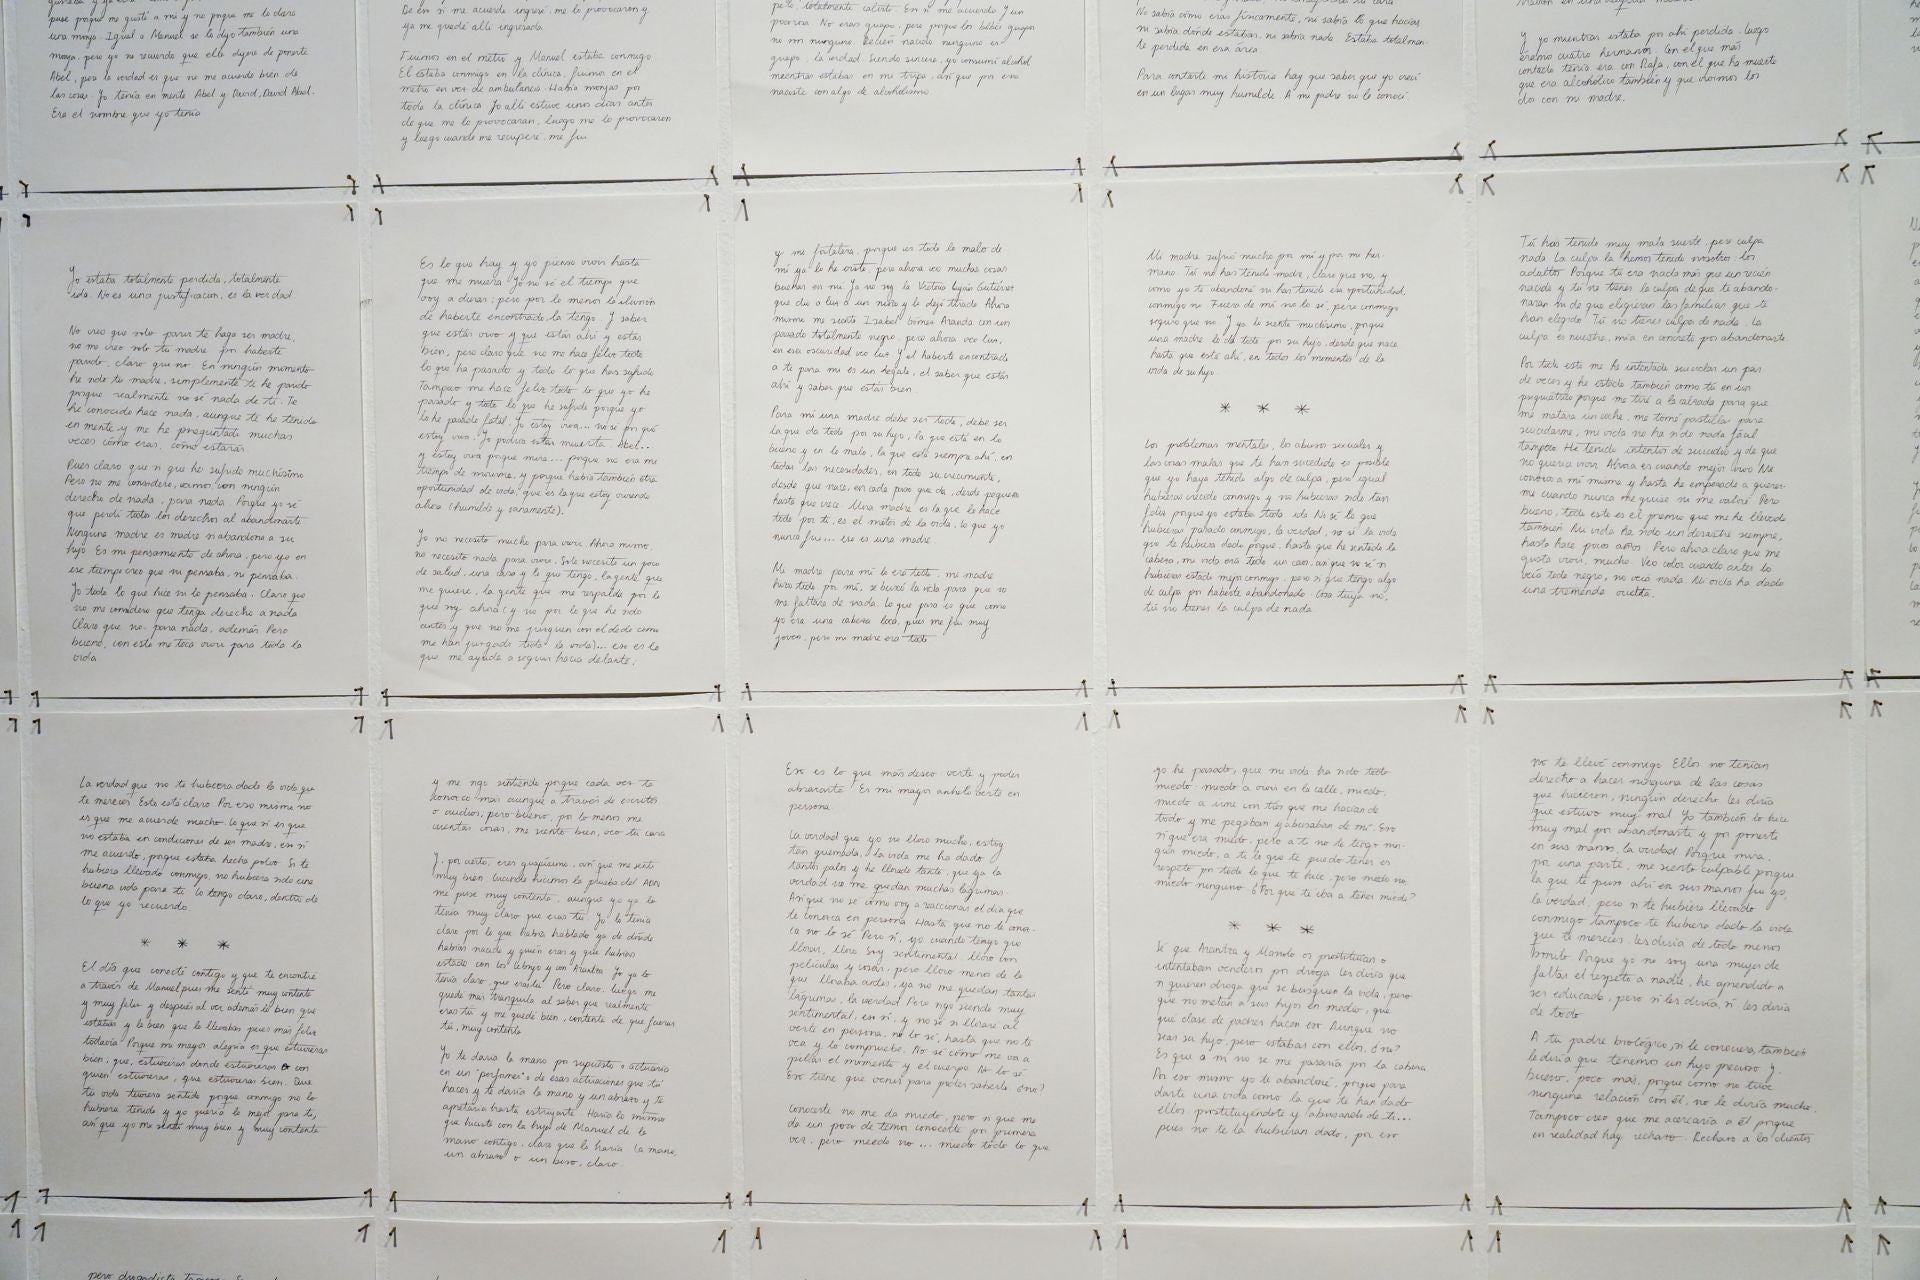 puse porque me gustó a mí y no porque me lo dijera
una monja. Igual a Manuel se lo dijo también una
monja, pero yo no recuerdo que ella dijera de ponerte
Abel, pero la verdad es que no me acuerdo bien de
las cosas. Yo tenía en mente Abel y David, David Abel.
Era el nombre que yo tenía
De en sí me acuerdo ingresé, me lo provocaron y
ya me quedé allí ingresada.
Fuimos en el metro y Manuel estaba conmigo
El estaba conmigo en la clínica, fuimos en el
metro en vez de ambulancia. Había monjas por
toda la clínica. Yo allí estuve unos días antes
de que me lo provocaran, luego me lo provocaron
y luego cuando me recuperé, me fui
pelo, totalmente calvito. En sí me acuerdo y un
poquino. No eras guapo, pero porque los bebés guapo
no son ninguno. Recién nacido ninguno es
guapo, la verdad. Siendo sincera, yo consumí alcohol
mientras estabas en mi tripa, así que por eso
naciste con algo de alcoholismo.
No sabía cómo eras físicamente, ni sabía lo que hacías,
ni sabía dónde estabas, ni sabía nada. Estaba totalmen-
te perdida en esa área.
Para contarte mi historia hay que saber que yo crecí
en un lugar muy humilde. A mi padre no le conocí.
y yo mientras estaba por ahí perdida. Luego
éramos cuatro hermanos. Con el que más
contacto tenía era con Rafa, con el que ha muerto
que era alcohólico también y que vivimos los
dos con mi madre.
Yo estaba totalmente perdida, totalmente
ida. No es una justificación, es la verdad
No creo que solo parir te haga ser madre,
no me creo solo tu madre por haberte
parido, claro que no. En ningún momento
he sido tu madre, simplemente te he parido
porque realmente no sé nada de ti. Te
he conocido hace nada, aunque te he tenido
en mente y me he preguntado muchas
veces cómo eras, cómo estarías.
Pues claro que sí que he sufrido muchísimo
Pero no me considero, vamos, con ningún
derecho de nada, para nada. Porque yo sé
que perdí todos los derechos al abandonarte
Ninguna madre es madre si abandona a su
hijo. Es mi pensamiento de ahora, pero yo en
ese tiempo creo que ni pensaba, ni pensaba.
Yo todo lo que hice ni lo pensaba. Claro que
no me considero que tenga derecho a nada
Claro que no. para nada, además. Pero
bueno, con esto me toca vivir para toda la
vida
Es lo que hay y yo pienso vivir hasta
que me muera. Yo no sé el tiempo que
voy a durar; pero por lo menos la ilusión
de haberte encontrado la tengo. Y saber
que estás vivo y que estás ahí y estás
bien, pero claro que no me hace feliz todo
lo que ha pasado y todo lo que has sufrido
Tampoco me hace feliz todo lo que yo he
pasado y todo lo que he sufrido porque yo
lo he pasado fatal. Yo estoy viva... no sé por qué
estoy viva. Yo podría estar muerta, Abel...
y estoy viva porque mira... porque no era mi
tiempo de morirme, y porque había también otra
oportunidad de vida, que es la que estoy viviendo
ahora (humilde y sanamente).
Yo no necesito mucho para vivir. Ahora mismo,
no necesito nada para vivir. Solo necesito un poco
de salud, una casa y lo que tengo, la gente que
me quiere, la gente que me respalda por lo
que soy ahora (y no por lo que he sido
antes y que no me juzguen con el dedo como
me han juzgado toda la vida)... eso es lo
que me ayuda a seguir hacia delante;
y me fortalece, porque es todo lo malo de
mí ya lo he visto, pero ahora veo muchas cosas
buenas en mí. Ya no soy la Victoria Luján Gutiérrez
que dio a luz a un niño y lo dejó tirado. Ahora
mismo me siento Izabel Gómez Aranda con un
pasado totalmente negro, pero ahora veo luz,
en esa oscuridad veo luz. Y el haberte encontrado
a ti para mí es un regalo, el saber que estás
ahí y saber que estás bien
Para mí una madre debe ser todo, debe ser
la que da todo por su hijo, la que está en lo
bueno y en lo malo, la que está siempre ahí, en
todas las necesidades, en todo su crecimiento,
desde que nace, en cada paso que da, desde pequeño
hasta que crece. Una madre es la que lo hace
todo por ti, es el motor de la vida, lo que yo
nunca fui... eso es una madre.
Mi madre para mí lo era todo, mi madre
hizo todo por mí, se buscó la vida para que no
me faltara de nada. Lo que pasa es que como
yo era una cabeza loca, pues me fui muy
joven, pero mi madre era todo
Mi madre sufrió mucho por mí y por mi her-
mano. Tú no has tenido madre, claro que no, y
como yo te abandoné no has tenido esa oportunidad,
conmigo no. Fuera de mí no lo sé, pero conmigo
seguro que no. Y yo lo siento muchísimo, porque
una madre lo da todo por su hijo, desde que nace
hasta que está ahí, en todos los momentos de la
vida de su hijo.
* * *
Los problemas mentales, los abusos sexuales y
las cosas malas que te han sucedido es posible
que yo haya tenido algo de culpa, pero igual
hubieras crecido conmigo y no hubieras sido tan
feliz porque yo estaba toda ida. No sé lo que
hubieras pasado conmigo, la verdad, no sé la vida
que te hubiera dado porque, hasta que he sentado la
cabeza, mi vida era todo un caos, así que no sé si
hubieras estado mejor conmigo, pero sí que tengo algo
de culpa por haberte abandonado. Cosa tuya no,
tú no tienes la culpa de nada.
Tú has tenido muy mala suerte, pero culpa
nada. La culpa la hemos tenido nosotros: los
adultos. Porque tú era nada más que un recién
nacido y tú no tienes la culpa de que te abando-
naran ni de que eligieran las familias que te
han elegido. Tú no tienes culpa de nada. La
culpa es nuestra, mía en concreto por abandonarte.
Por todo esto me he intentado suicidar un par
de veces y he estado también como tú en un
psiquiátrico porque me tiré a la calzada para que
me matara un coche, me tomé pastillas para
suicidarme, mi vida no ha sido nada fácil
tampoco. He tenido intentos de suicidio y de que
no quería vivir. Ahora es cuando mejor vivo. Me
conozco a mí misma y hasta he empezado a querer-
me cuando nunca me quise ni me valoré. Pero
bueno, todo este es el premio que me he llevado
también. Mi vida ha sido un desastre siempre,
hasta hace pocos años. Pero ahora claro que me
gusta vivir, mucho. Veo color cuando antes lo
veía todo negro, no veía nada. Mi vida ha dado
una tremenda vuelta.
La verdad que no te hubiera dado la vida que
te mereces. Esto está claro. Por eso mismo no
es que me acuerde mucho. Lo que sí es que
no estaba en condiciones de ser madre, eso sí
me acuerdo, porque estaba hecha polvo. Si te
hubiera llevado conmigo, no hubiera sido una
buena vida para ti. Lo tengo claro, dentro de
lo que yo recuerdo.
* * *
El día que conecté contigo y que te encontré
a través de Manuel pues me sentí muy contenta
y muy feliz y después al ver además lo bien que
estabas y lo bien que lo llevabas pues más feliz
todavía. Porque mi mayor alegría es que estuvieras
bien, que, estuvieras donde estuvieras o con
quien estuvieras, que estuvieras bien. Que
tu vida tuviera sentido porque conmigo no lo
hubiera tenido y yo quería lo mejor para ti,
así que yo me sentí muy bien y muy contenta
y me sigo sintiendo porque cada vez te
conozco más aunque a través de escritos
o audios, pero bueno, por lo menos me
cuentas cosas, me siento bien, veo tu cara
Y, por cierto, eres guapísimo, así que me sentí
muy bien. Cuando hicimos la prueba del ADN
me puse muy contenta, aunque yo ya lo
tenía muy claro que eras tú. Yo lo tenía
claro por lo que había hablado ya de dónde
habías nacido y quién eras y que habías
estado con los Lebojo y con Arantza. Yo ya lo
tenía claro, que eras tú. Pero claro, luego me
quedé más tranquila al saber que realmente
eras tú y me quedé bien, contenta de que fueras
tú, muy contenta
Yo te daría la mano por supuesto o actuaría
en un "performer" o de esas actuaciones que tú
haces y te daría la mano y un abrazo y te
apretaría hasta estrujarte. Haría lo mismo
que hiciste con la hija de Manuel de la
mano contigo, claro que lo haría. La mano,
un abrazo o un beso, claro
Eso es lo que más deseo: verte y poder
abrazarte. Es mi mayor anhelo verte en
persona.
La verdad que yo no lloro mucho, estoy
tan quemada, la vida me ha dado
tantos palos y he llorado tanto, que ya la
verdad no me quedan muchas lágrimas.
Así que no sé cómo voy a reaccionar el día que
te conozca en persona. Hasta que no te conoz-
ca no lo sé. Pero sí, yo cuando tengo que
llorar, lloro. Soy sentimental, lloro con
películas y cosas, pero lloro menos de lo
que lloraba antes, ya no me quedan tantas
lágrimas, la verdad. Pero sigo siendo muy
sentimental, eso sí, y no sé si lloraré al
verte en persona, no lo sé, hasta que no te
vea y lo compruebe. No sé cómo me va a
pillar el momento y el cuerpo. No lo sé.
Eso tiene que venir para poder saberlo, ¿no?
Conocerte no me da miedo, pero sí que me
da un poco de temor conocerte por primera
vez, pero miedo no... miedo todo lo que
yo he pasado, que mi vida ha sido todo
miedo: miedo a vivir en la calle, miedo,
miedo a irme con tíos que me hacían de
todo y me pegaban y abusaban de mí. Eso
sí que era miedo, pero a ti no le tengo nin-
gún miedo, a ti lo que te puedo tener es
respeto por todo lo que te hice, pero miedo no,
miedo ninguno. ¿Por qué te iba a tener miedo?
* * *
Sé que Arantza y Manolo os prostituían o
intentaban venderos por droga. Les diría que
si quieren droga que se busquen la vida, pero
que no metan a sus hijos en medio, que
qué clase de padres hacen eso. Aunque no
seas su hijo, pero estabas con ellos, ¿no?
Es que a mí no se me pasaría por la cabeza
Por eso mismo yo te abandoné, porque para
darte una vida como la que te han dado
ellos: prostituyéndote y abusando de ti...
pues no te la hubieran dado, por eso
no te llevé conmigo. Ellos no tenían
derecho a hacer ninguna de las cosas
que hicieron, ningún derecho. Les diría
que estuvo muy mal. Yo también lo hice
muy mal por abandonarte y por ponerte
en sus manos, la verdad. Porque mira,
por una parte, me siento culpable porque
la que te puso ahí en sus manos fui yo,
la verdad, pero si te hubiera llevado
conmigo tampoco te hubiera dado la vida
que te mereces. Les diría de todo menos
bonito. Porque yo no soy una mujer de
faltar el respeto a nadie, he aprendido a
ser educada, pero sí les diría, sí les diría
de todo
A tu padre biológico, si le conociera, también
le diría que tenemos un hijo precioso y,
bueno, poco más, porque como no tuve
ninguna relación con él, no le diría mucho.
Tampoco creo que me acercaría a él porque
en realidad hay rechazo. Rechazo a los clientes